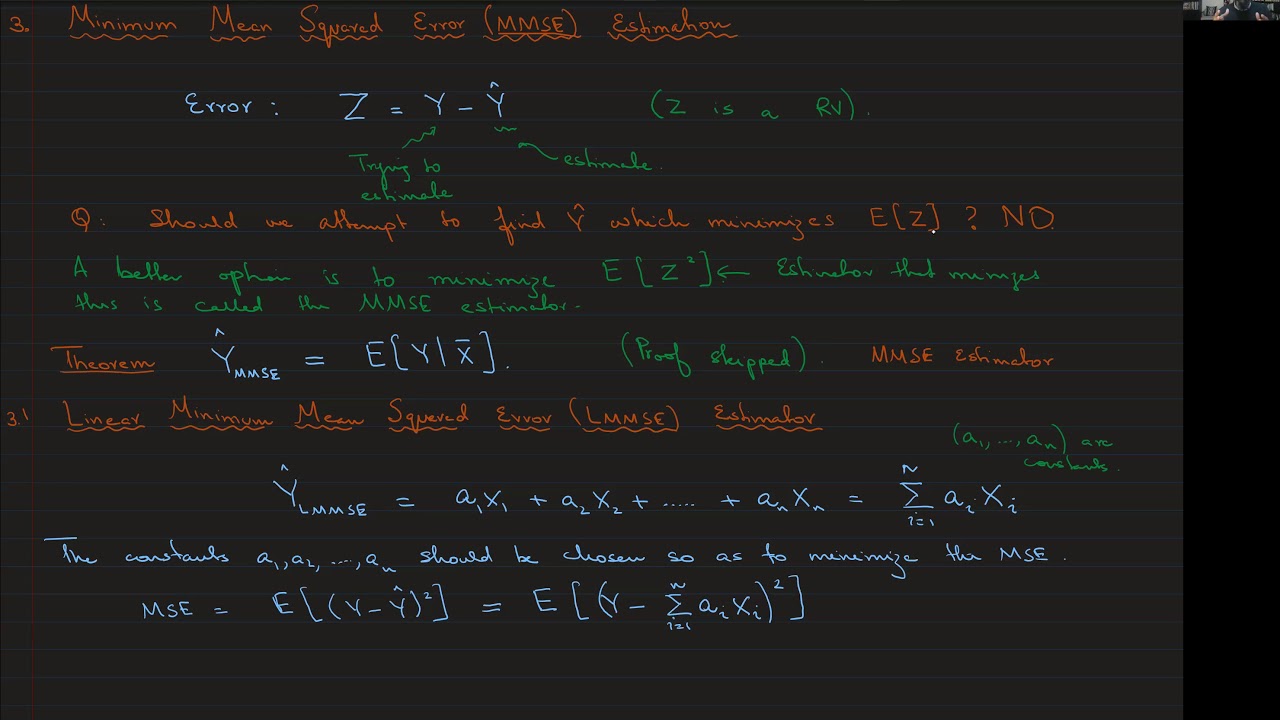 3. Minimum Mean Squared Error (MMSE) Estimation
Error : Z = Y - Ŷ (Z is a RV).
Trying to estimate.
estimate
Q: Should we attempt to find Ŷ which minimizes E[Z] ? NO.
A better option is to minimize E[Z²] ← Estimator that minimizes
this is called the MMSE estimator.
Theorem Ŷ_MMSE = E[Y|X̄]. (Proof skipped). MMSE Estimator
3.1 Linear Minimum Mean Squared Error (LMMSE) Estimator
(a₁, ..., aₙ) are
constants.
Ŷ_LMMSE = a₁X₁ + a₂X₂ + ..... + aₙXₙ = Σ_{i=1}^{N} aᵢXᵢ
The constants a₁, a₂, ...., aₙ should be chosen so as to minimize the MSE.
MSE = E[(Y - Ŷ)²] = E[(Y - Σ_{i=1}^{n} aᵢXᵢ)²]